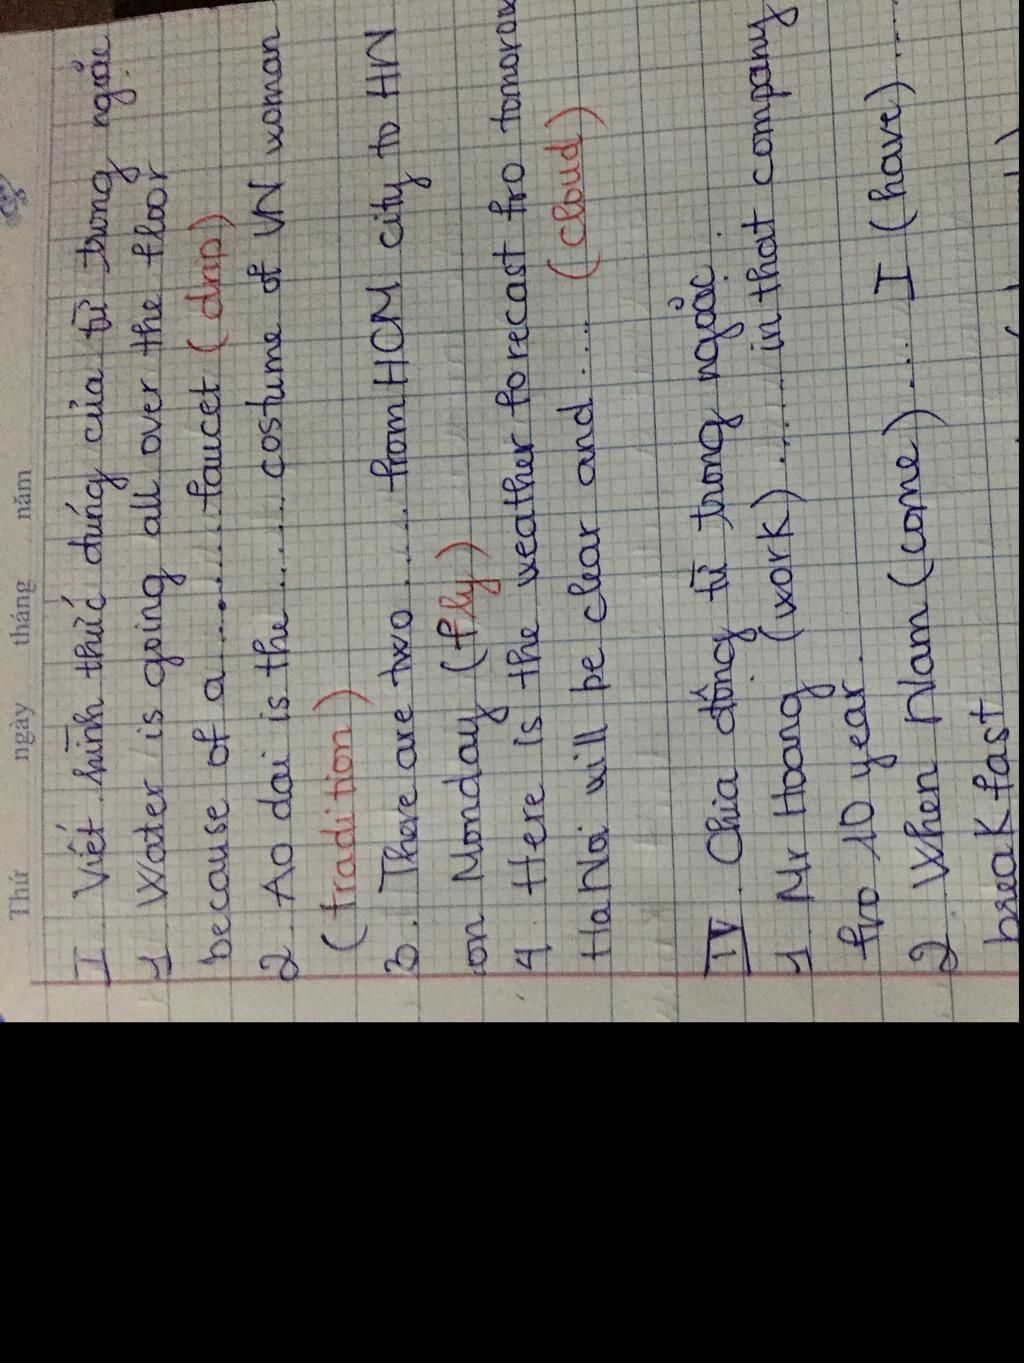 Thứ ngày tháng năm
I. Viết hình thức đúng của từ trong ngoặc.
1. Water is going all over the floor
because of a ......... faucet (drip)
2. Ao dai is the ......... costume of VN woman
(tradition)
3. There are two ...... from HCM city to HN
on Monday (fly)
4. Here is the weather forecast fro tomorow
Ha Noi will be clear and .... (cloud)
IV. Chia động từ trong ngoặc.
1 Mr Hoang (work) ......... in that company
fro 10 year.
2. When Nam (come) .... I (have) ....
breakfast